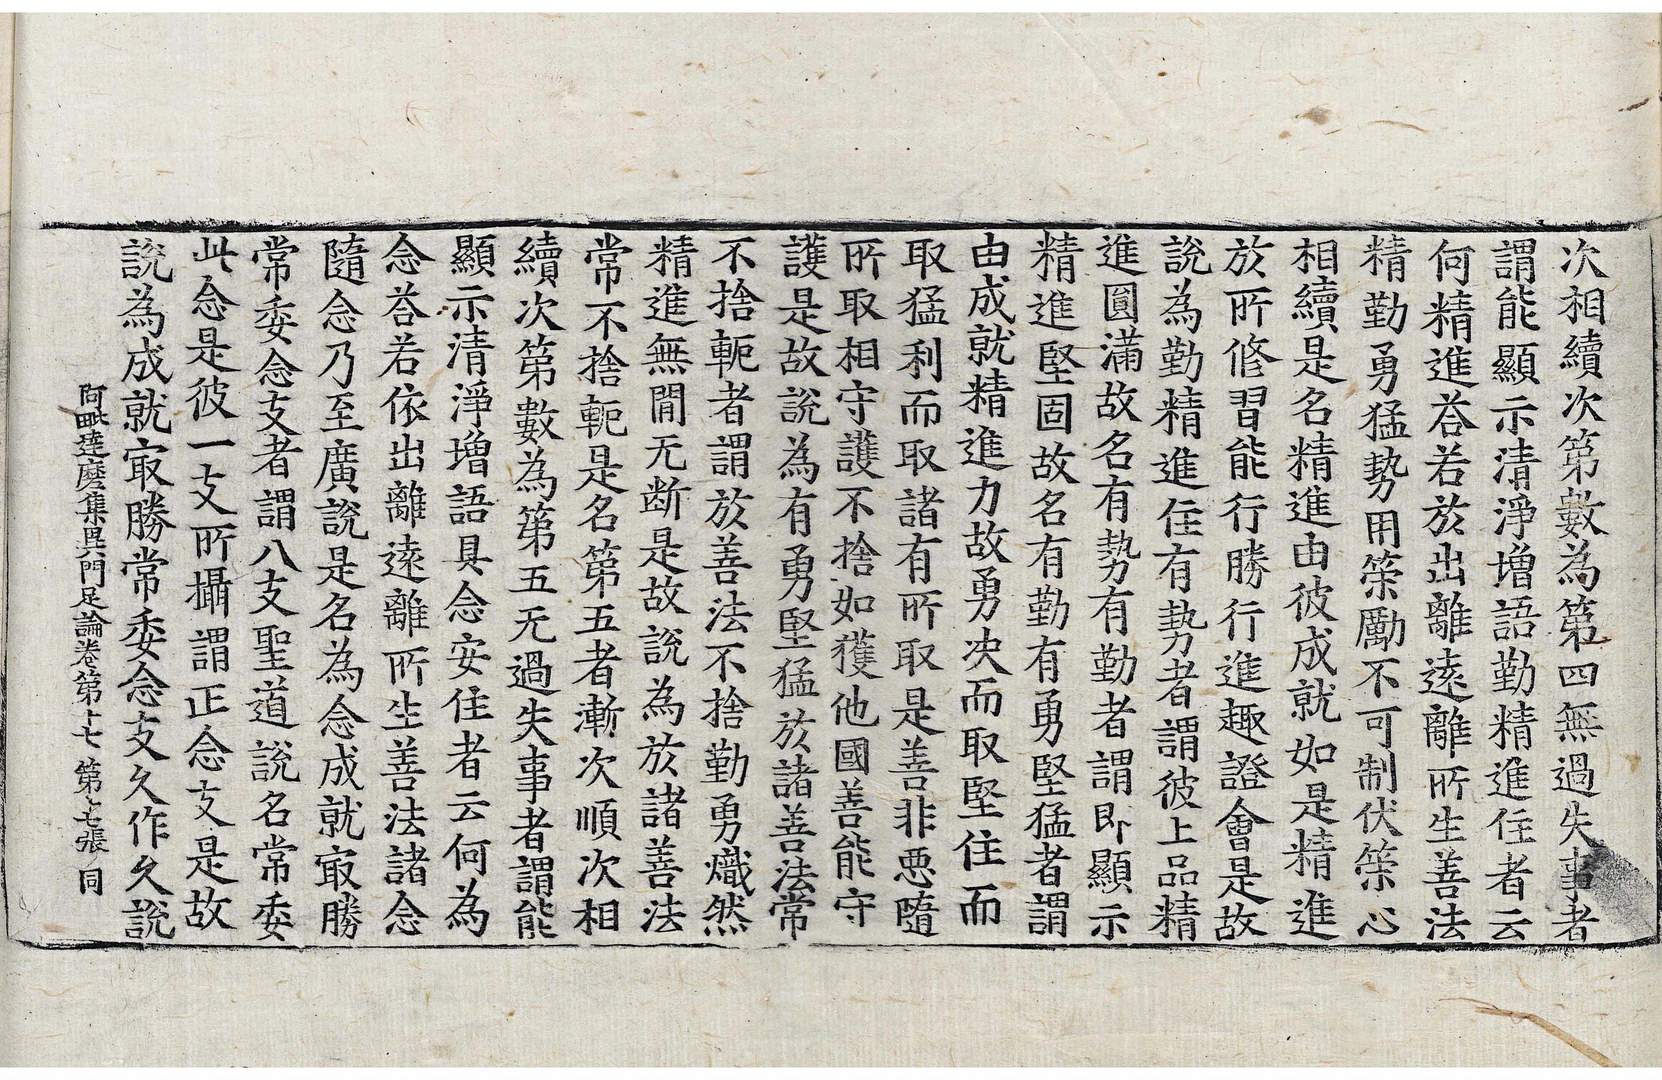 次相續次第數為第四無過失事者
謂能顯示清淨增語勤精進住者云
何精進荅若於出離遠離所生善法
精勤勇猛勢用䇿勵不可制伏䇿心
相續是名精進由彼成就如是精進
於所修習能行勝行進趣證會是故
說為勤精進住有勢者謂彼上品精
進圓滿故名有勢有勤者謂即顯示
精進堅固故名有勤有勇堅猛者謂
由成就精進力故勇決而取堅住而
取猛利而取諸有所取是善非悪隨
所取相守護不捨如獲他國善能守
護是故說為有勇堅猛於諸善法常
不捨軛者謂於善法不捨勤勇熾然
精進無閒无断是故說為於諸善法
常不捨軛是名第五者漸次順次相
續次第數為第五无過失事者謂能
顯示清淨增語具念安住者云何為
念荅若依出離遠離所生善法諸念
隨念乃至廣說是名為念成就㝡勝
常委念支者謂八支聖道說名常委
此念是彼一支所攝謂正念支是故
說為成就㝡勝常委念支久作久說
阿毗達磨集異門足論卷第十七 第七張 同